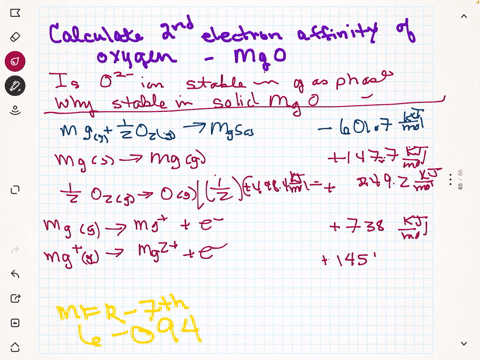 Calculate 2nd electron affinity of
oxygen - MgO
Is O2- ion stable in gas phase
why stable in solid MgO
Mg(s) + 1/2 O2(g) → MgO(s) - 601.7 kJ/mol
Mg(s) → Mg(g) +147.7 kJ/mol
1/2 O2(g) → O(g) (1/2)(+498.4 kJ/mol) = + 249.2 kJ/mol
Mg(g) → Mg+ + e- +738 kJ/mol
Mg+(g) → Mg2+ + e- +145
MFR-7th
6-094